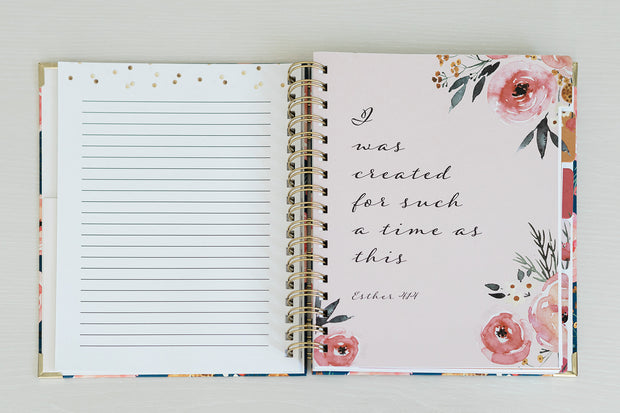 I
was
created
for such
a time as
this
Esther 4:14